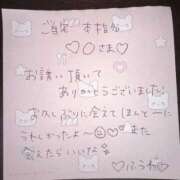 ご自宅 本指名
♡○さま♡
お誘い頂いて
ありがとうございました!
お久しぶりに会えてほんとーに
うれしかったよ〜☺♡また
会えたらいいな
♡ふうか♡